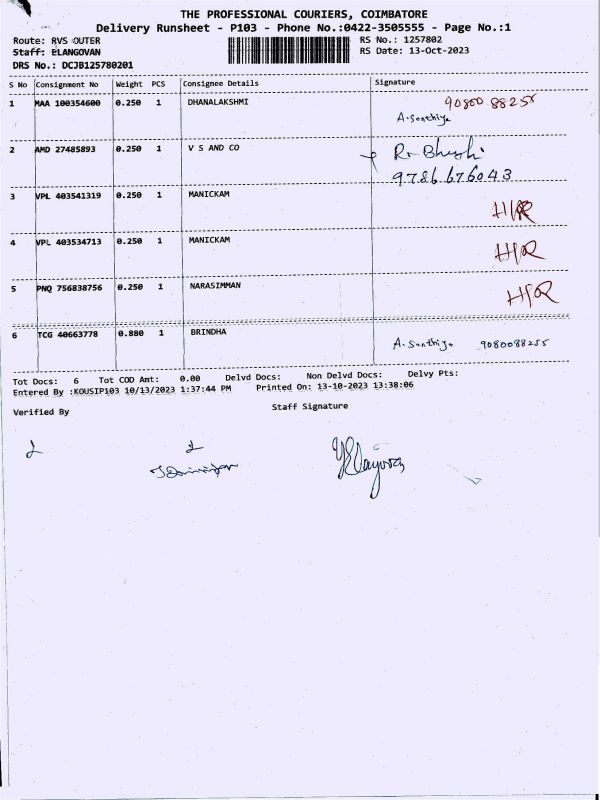 THE PROFESSIONAL COURIERS, COIMBATORE
Delivery Runsheet - P103 - Phone No.:0422-3505555 - Page No.:1
Route: RVS OUTER RS No.: 1257802
Staff: ELANGOVAN RS Date: 13-Oct-2023
DRS No.: DCJB125780201
S No Consignment No Weight PCS Consignee Details Signature
1 MAA 100354600 0.250 1 DHANALAKSHMI 90800 88255
A. Santhiya
2 AMD 27485893 0.250 1 V S AND CO
9786676043
3 VPL 403541319 0.250 1 MANICKAM H/R
4 VPL 403534713 0.250 1 MANICKAM H/R
5 PNQ 756838756 0.250 1 NARASIMMAN H/R
6 TCG 40663778 0.880 1 BRINDHA A. Santhiya 9080088255
Tot Docs: 6 Tot COD Amt: 0.00 Delvd Docs: Non Delvd Docs: Delvy Pts:
Entered By :KOUSIP103 10/13/2023 1:37:44 PM Printed On: 13-10-2023 13:38:06
Verified By Staff Signature